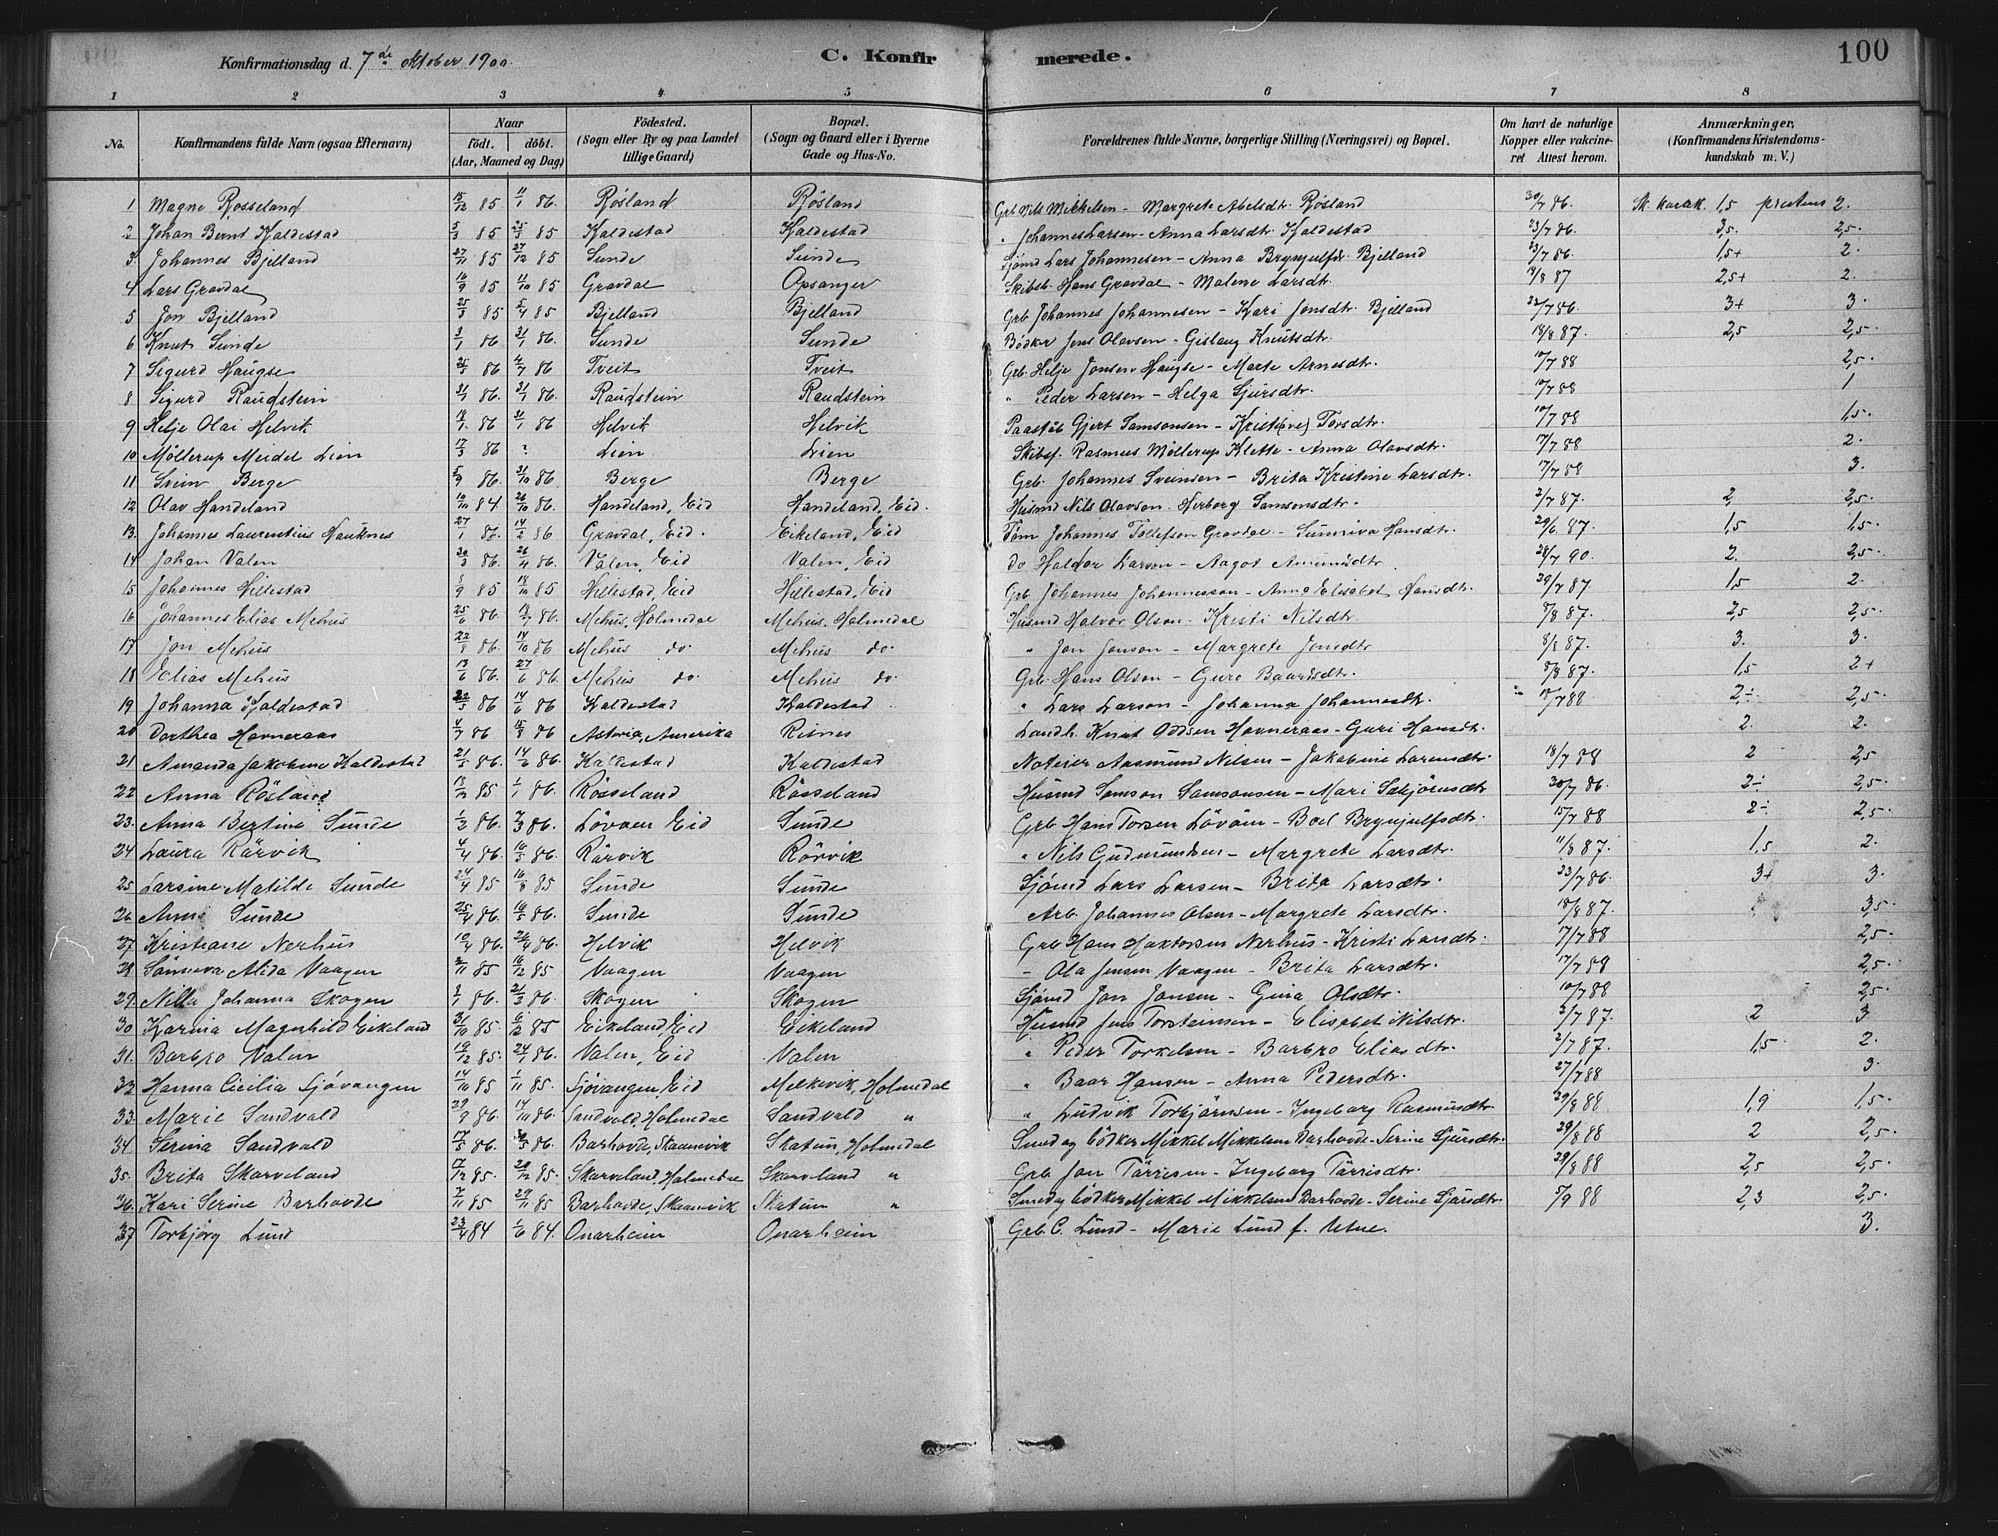 Konfirmationsdag d. 7de oktober 1900. C. Konfirmerede. 100
1 2 3 4 5 6 7 8
No. Konfirmandens fulde Navn (ogsaa Efternavn) Naar födt. döbt. (Aar, Maaned og Dag) Födested. (Sogn eller By og paa Landet tillige Gaard) Bopæl. (Sogn og Gaard eller i Byerne Gade og Hus-No. Forældrenes fulde Navne, borgerlige Stilling (Næringsvei) og Bopæl. Om havt de naturlige Kopper eller vakcineret Attest herom. Anmærkninger, (Konfirmandens Kristendomskundskab m. V.)
1 Magne Rosseland 15/12 85 11/1 86. Røsland Røsland Grb Nils Mikkelsen - Margrete Abelsdtr. Røsland 30/7 86. Sk. karak. 1,5 prestens 2.
2 Johan Bernt Kaldestad 5/3 85 25/3 85 Kaldestad Kaldestad " Johannes Larsen - Anna Larsdtr. Kaldestad 23/7 86. 3,5. 2,5.
3. Johannes Bjelland 27/11 85 27/12 85 Sunde Sunde Sjømd Lars Johannesen - Anna Brynjulfsdr. Bjelland 23/7 86. 1,5+ 2.
4 Lars Gravdal 16/9 85 11/10 85 Gravdal Opsanger Skibsb. Hans Gravdal - Malene Larsdtr. 18/8 87 2,5+ 2.
5 Jon Bjelland 25/3 85 5/4 85 Bjelland Bjelland Grb. Johannes Johannesen - Kari Jonsdtr. Bjelland 23/7 86 3+ 3.
6 Knut Sunde 3/1 86 31/1 86. Sunde Sunde Bödker Jens Olavsen - Gislaug Knutsdtr. 18/8 87. 2,5 2,5.
7 Sigurd Haugse 86 86. Tveit Tveit Grb. Helje Jonsen Haugse - Marte Arnesdtr. 10/7 88 2,5.
8 Sigurd Raudstein 86. 31/1 86. Raudstein Raudstein " Peder Larsen - Helga Sjursdtr. 10/7 88 1
9 Helje Olai Helvik 18/1 86 31/1 86 Helvik Helvik Gjert Samsonsen - Kristi(ne) Torsdtr. 10/7 88 1,5.
10 Möllerup Meidel Lien 17/3 86 ? Lien Lien Skibsf. Rasmus Möllerup Klette - Anna Olavsdtr. 17/7 88 2.
11 Svein Berge 5/9 86. 31/10 86 Berge Berge Grb. Johannes Sveinsen - Brita Kristine Larsdtr. 17/7 88 3.
12 Olav Handeland 10/10 84 26/10 86. Handeland, Eid Handeland, Eid. Husmd Nils Olavson. Herborg Samsonsdtr. 2/7 87. 2, 2,5.
13. Johannes Laurentius Hauknes 27/1 86. 14/2 86 Gravdal, Eid. Eikeland, Eid Tøm Johannes Tollefson Gravdal - Sunniva Hansdtr. 29/6 87. 1,5 1,5.
14 Johan Valen 30/3 86. 26/4 86. Valen, Eid Valen, Eid do Haldor Larson - Aagot Amundsdtr. 28/7 90. 2. 2,5.
15 Johannes Hillestad 9 85 18/10 85 Hillestad, Eid Hillestad, Eid Grb Johannes Johannesson - Anna Elisabet Hansdtr. 29/7 87 1,5 2.
16 Johannes Elias Mehus 25/6 86. 18/7 86. Mehus, Holmedal Mehus, Holmedal Husmd Halvor Olson - Kristi Nilsdtr. 8/8 87. 2,5 2,5.
17 Jon Mehus 22/8 86. 14/10 86 Mehus do. Mehus do. " Jon Jonson - Margrete Jonsdtr. 8/8 87. 3. 3.
18 Elias Mehus 13/6 86. 27/6 86. Mehus do. Mehus do. Grb. Hans Olson - Guro Baardsdtr. 8/8 87. 1,5 2+
19 Johanna Kaldestad 22/5 86 14/6 86 Kaldestad Kaldestad " Lars Larson - Johanna Johannesdtr. 88 2÷ 2,5.
20 Dorthea Havneraas 4/7 86 15/8 86 Astoria, Amerika Risnes Landh. Knut Oddsen Havneraas - Guri Hansdtr. 2. 2.
21 Amanda Jakobine Kaldestad 21/5 86. 14/6 86. Kaldestad Kaldestad Noteier Aasmund Nilsen - Jakobine Larensdtr. 18/7 88 2 2,5
22 Anna Rösland 13/12 85 1/1 86. Rösseland Rösseland Husmd Samson Samsonsen - Mari Sabjörnsdtr. 30/7 86. 2÷ 2,5.
23. Anna Bertine Sunde 1/2 86. 7/3 86. Lövaen Eid Sunde Grb Hans Torsen Lövaen - Boel Brynjulfsdtr. 15/7 88 2÷ 2,5.
24 Laura Rörvik 4/4 86. 10/5 86. Rörvik Rörvik " Nils Gudmundsen - Margrete Larsdtr. 11/8 87. 1,5 2.
25 Larsine Matilde Sunde 24/4 85 16/8 85 Sunde Sunde Sjømd Lars Larsen - Brita Larsdtr. 23/7 86. 3+ 3.
26 Anna Sunde 25/4 86. 16/5 86. Sunde Sunde Arb. Johannes Olsen - Margrete Larsdtr. 18/8 87. 3,5.
27 Kristiane Nerhus 10/4 86. 26/4 86. Helvik Helvik Grb Hans Haktorsen Nerhus - Kristi Larsdtr. 17/7 88 2,5.
28 Sönneva Alida Vaagen 2/11 85 16/12 85. Vaagen Vaagen - Ola Jensen Vaagen - Brita Larsdtr. 17/7 88 2,5.
29. Nilla Johanna Skogen 86. 21/3 86. Skogen Skogen Sjømd Jon Jonsen - Gina Olsdtr. 10/7 88 2,5.
30 Karina Magnhild Eikeland 31/10 85. 6/12 85 Eikeland, Eid Eikeland Husmd Jens Torsteinsen - Elisabet Nilsdtr. 2/7 87. 2 3
31. Barbro Valen 19/12 85. 24/1 86. Valen, Eid Valen " Peder Torkelsen - Barbro Eliasdtr. 2/7 87. 1,5 2.
32 Hanna Cicilia Sjövangen 14/10 85 1/11 85. Sjövangen, Eid Melkevik, Holmedal " Baar Hansen - Anna Pedersdtr. 27/7 88 3.
33. Marie Sandvald 29/9 86. 14/10 86. Sandvald, Holmedal Sandvald " " Ludvik Torbjörnsen - Ingeborg Rasmusdtr 29/8 88 1,9 1,5.
34 Serina Sandvald 17/5 86. 30/5 86. Barhovde, Skaanevik Skatun, Holmedal Smed og bödker Mikkel Mikkelsen Barhovde - Serine Sjursdtr. 29/8 88 2 2,5.
35. Brita Skarveland 7/12 85. 29/12 85. Skarveland, Holmedal Skarveland " Grb. Jon Tärresen - Ingeborg Tärresdtr. 29/8 88 2,5 2,5.
36. Kari Serine Barhovde 2/11 85 29/11 85 Barhovde, Skaanevik Skatun " Smed og bödker Mikkel Mikkelsen Barhovde - Serine Sjursdtr. 5/9 88 2,3 2,5.
37 Torbjörg Lund 23/4 84 1/6 84. Onarheim Onarheim Grb. C. Lund - Marie Lund f. Utne. 3.